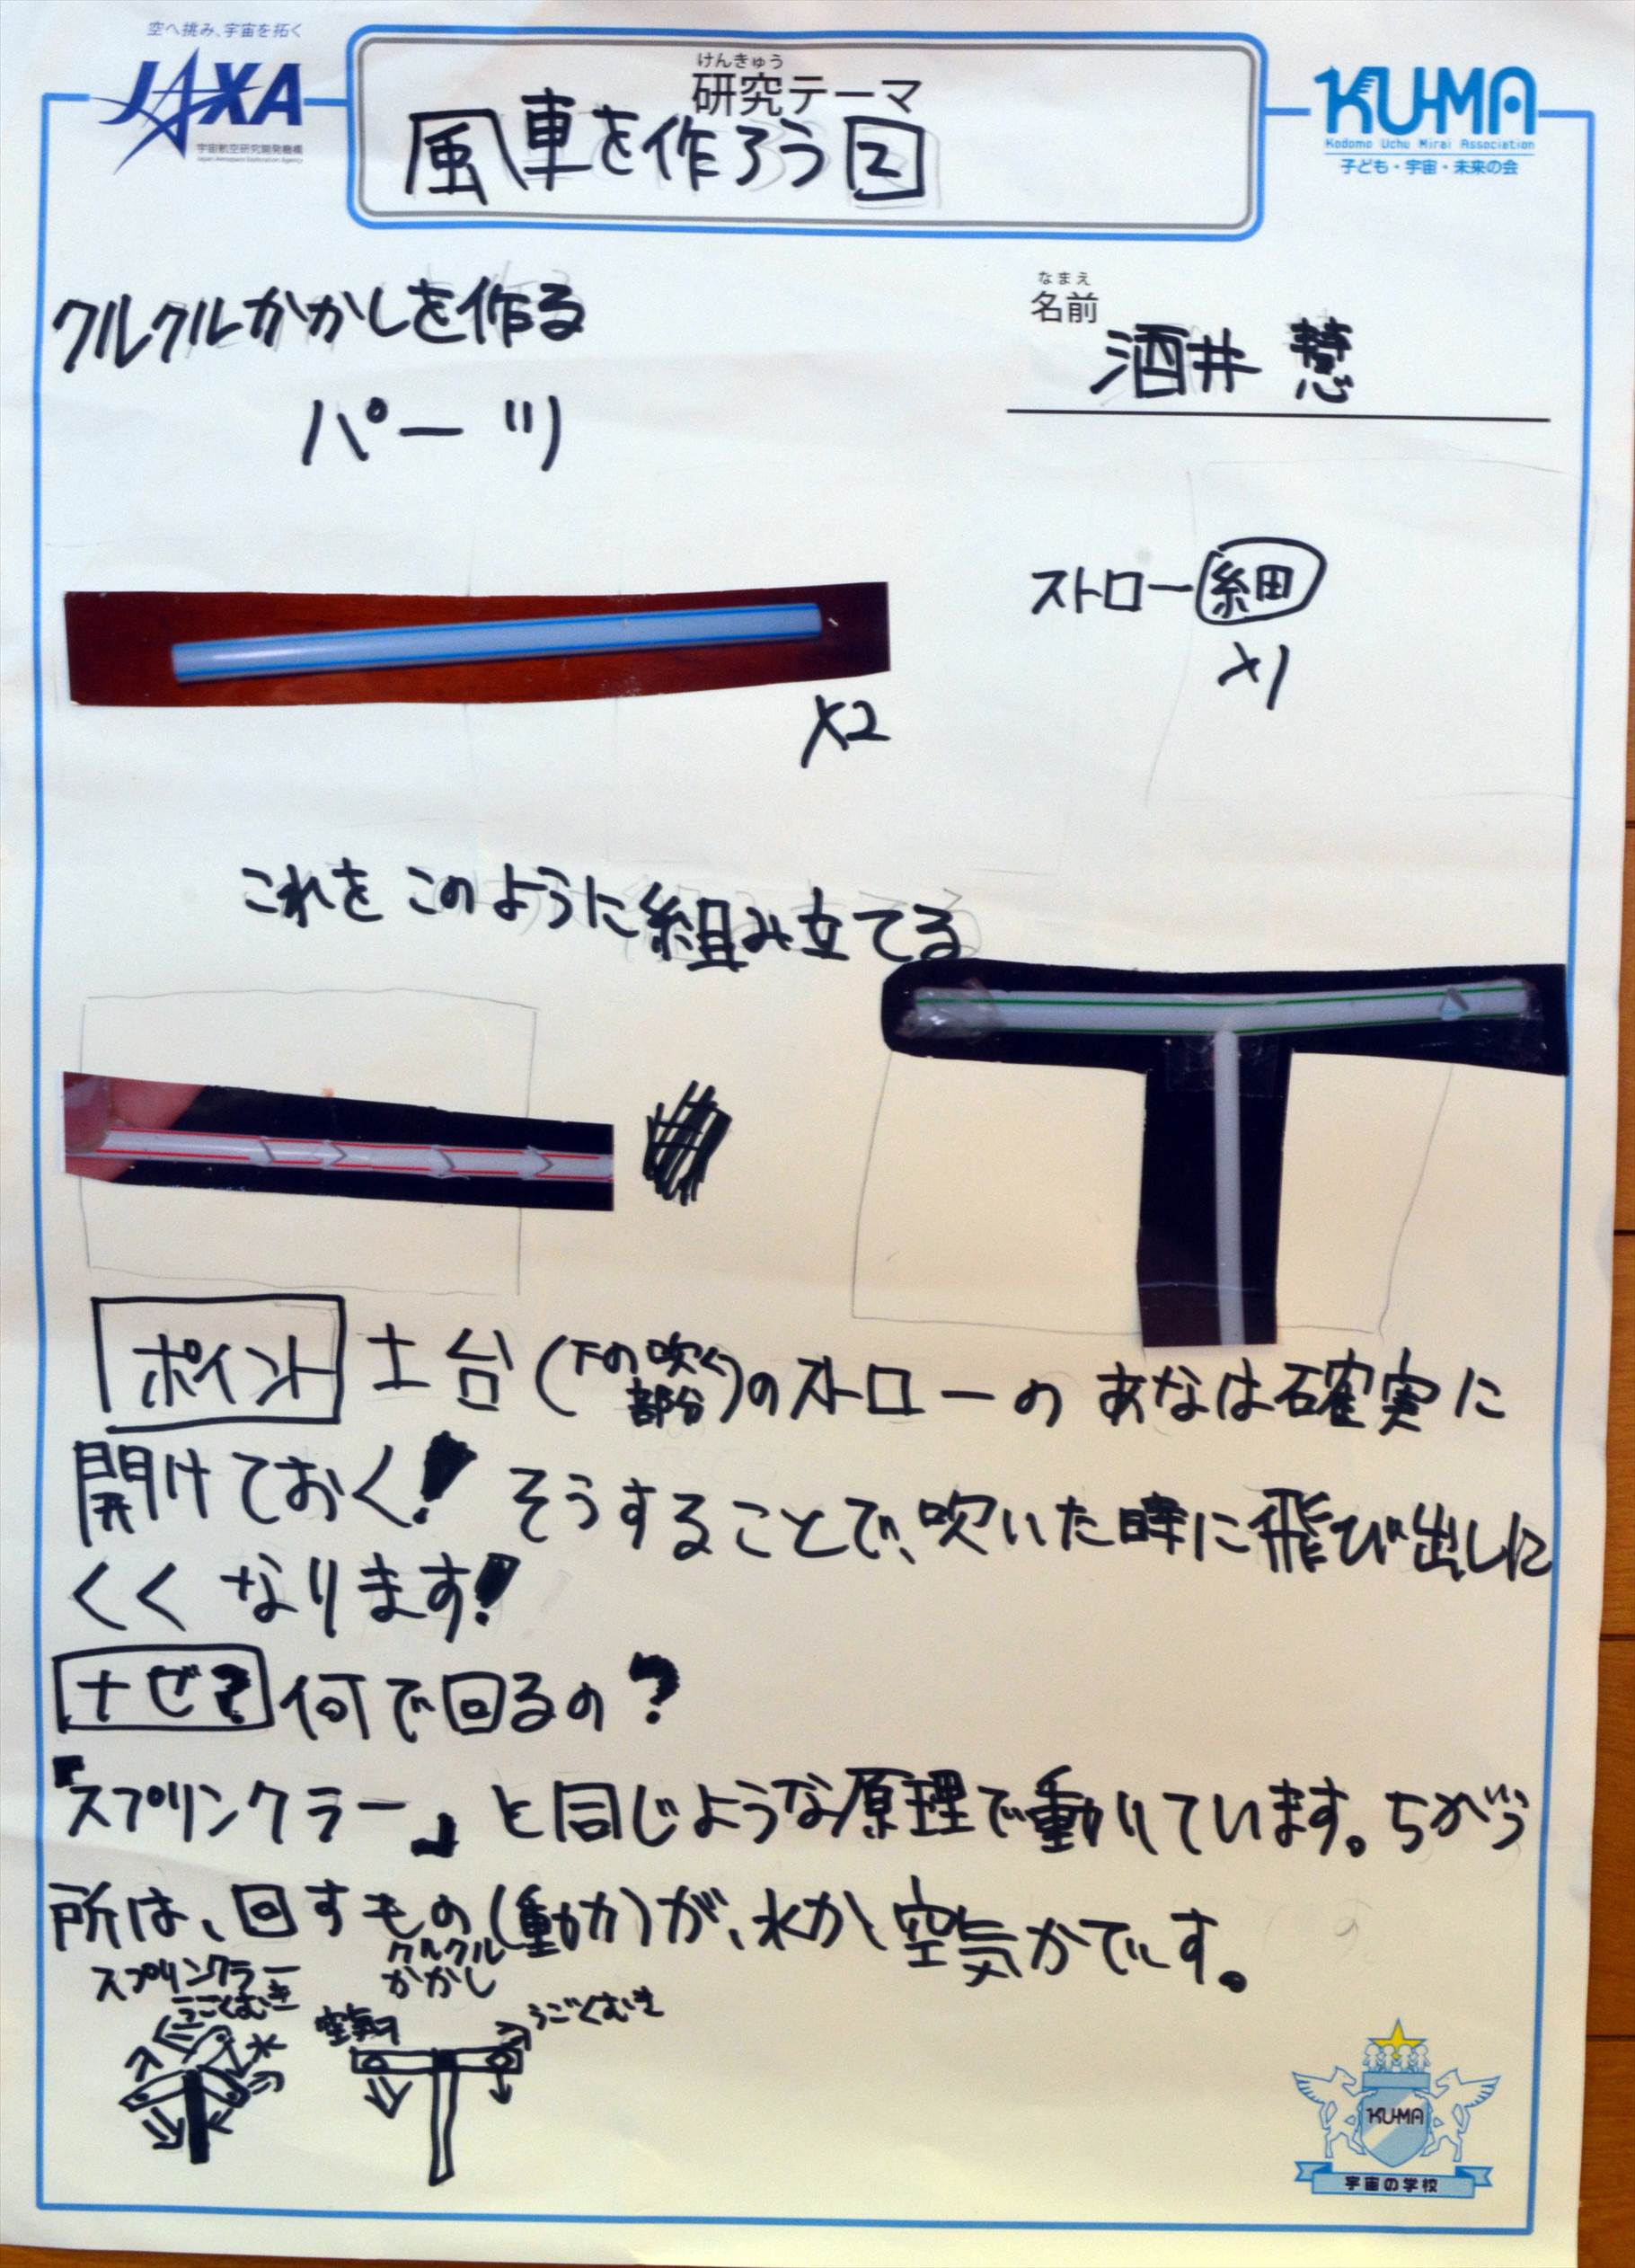 空へ挑み、宇宙を拓く
JAXA
宇宙航空研究開発機構
Japan Aerospace Exploration Agency
けんきゅう
研究テーマ
風車を作ろう2
KU-MA
Kodomo Uchu Mirai Association
子ども・宇宙・未来の会
クルクルかかしを作る
なまえ
名前
酒井 慧
パーツ
ストロー細
×1
×2
これをこのように組み立てる
ポイント 土台(下の吹く部分)のストローのあなは確実に
開けておく!そうすることで、吹いた時に飛び出しに
くくなります!
ナゼ?何で回るの?
『スプリンクラー』と同じような原理で動いています。ちがう
所は、回すもの(動力)が、水か、空気かです。
スプリンクラー
うごくむき
水
クルクル
かかし
空気
うごくむき
KU-MA
宇宙の学校